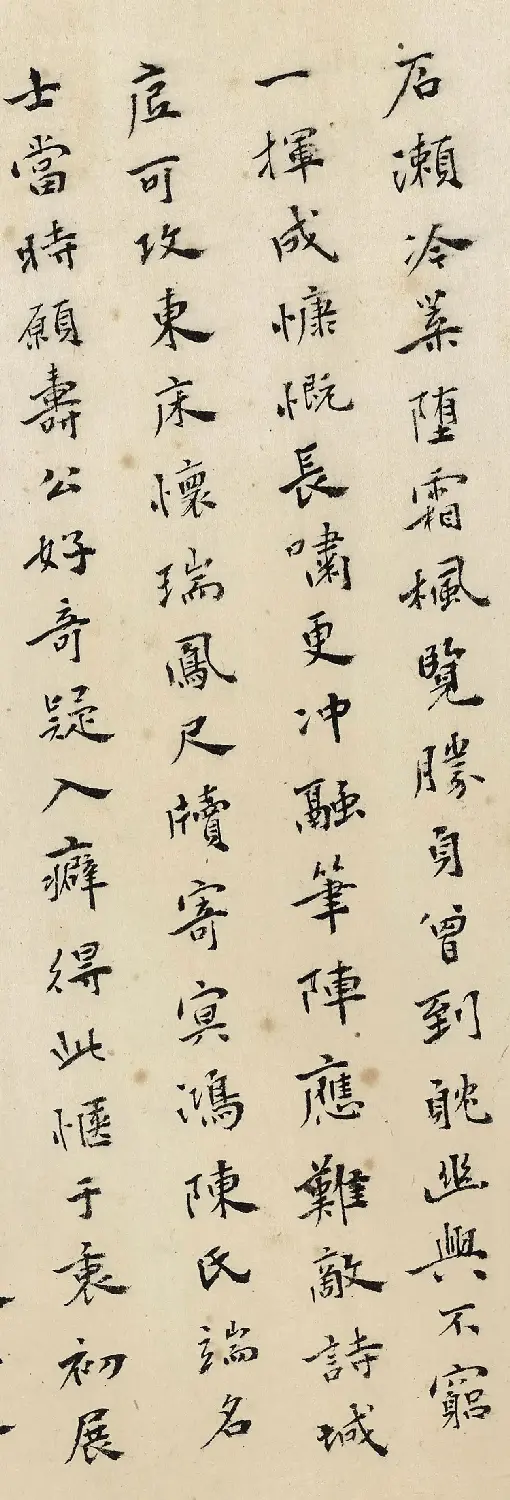 石瀨冷葉墮霜楓覽勝身曾到耽幽興不窮
一揮成慷慨長嘯更冲融筆陣應難敵詩城
固可攻東床懷瑞鳳尺牘寄冥鴻陳氏端名
士當時願壽公好奇疑入癖得此愜于衷初展